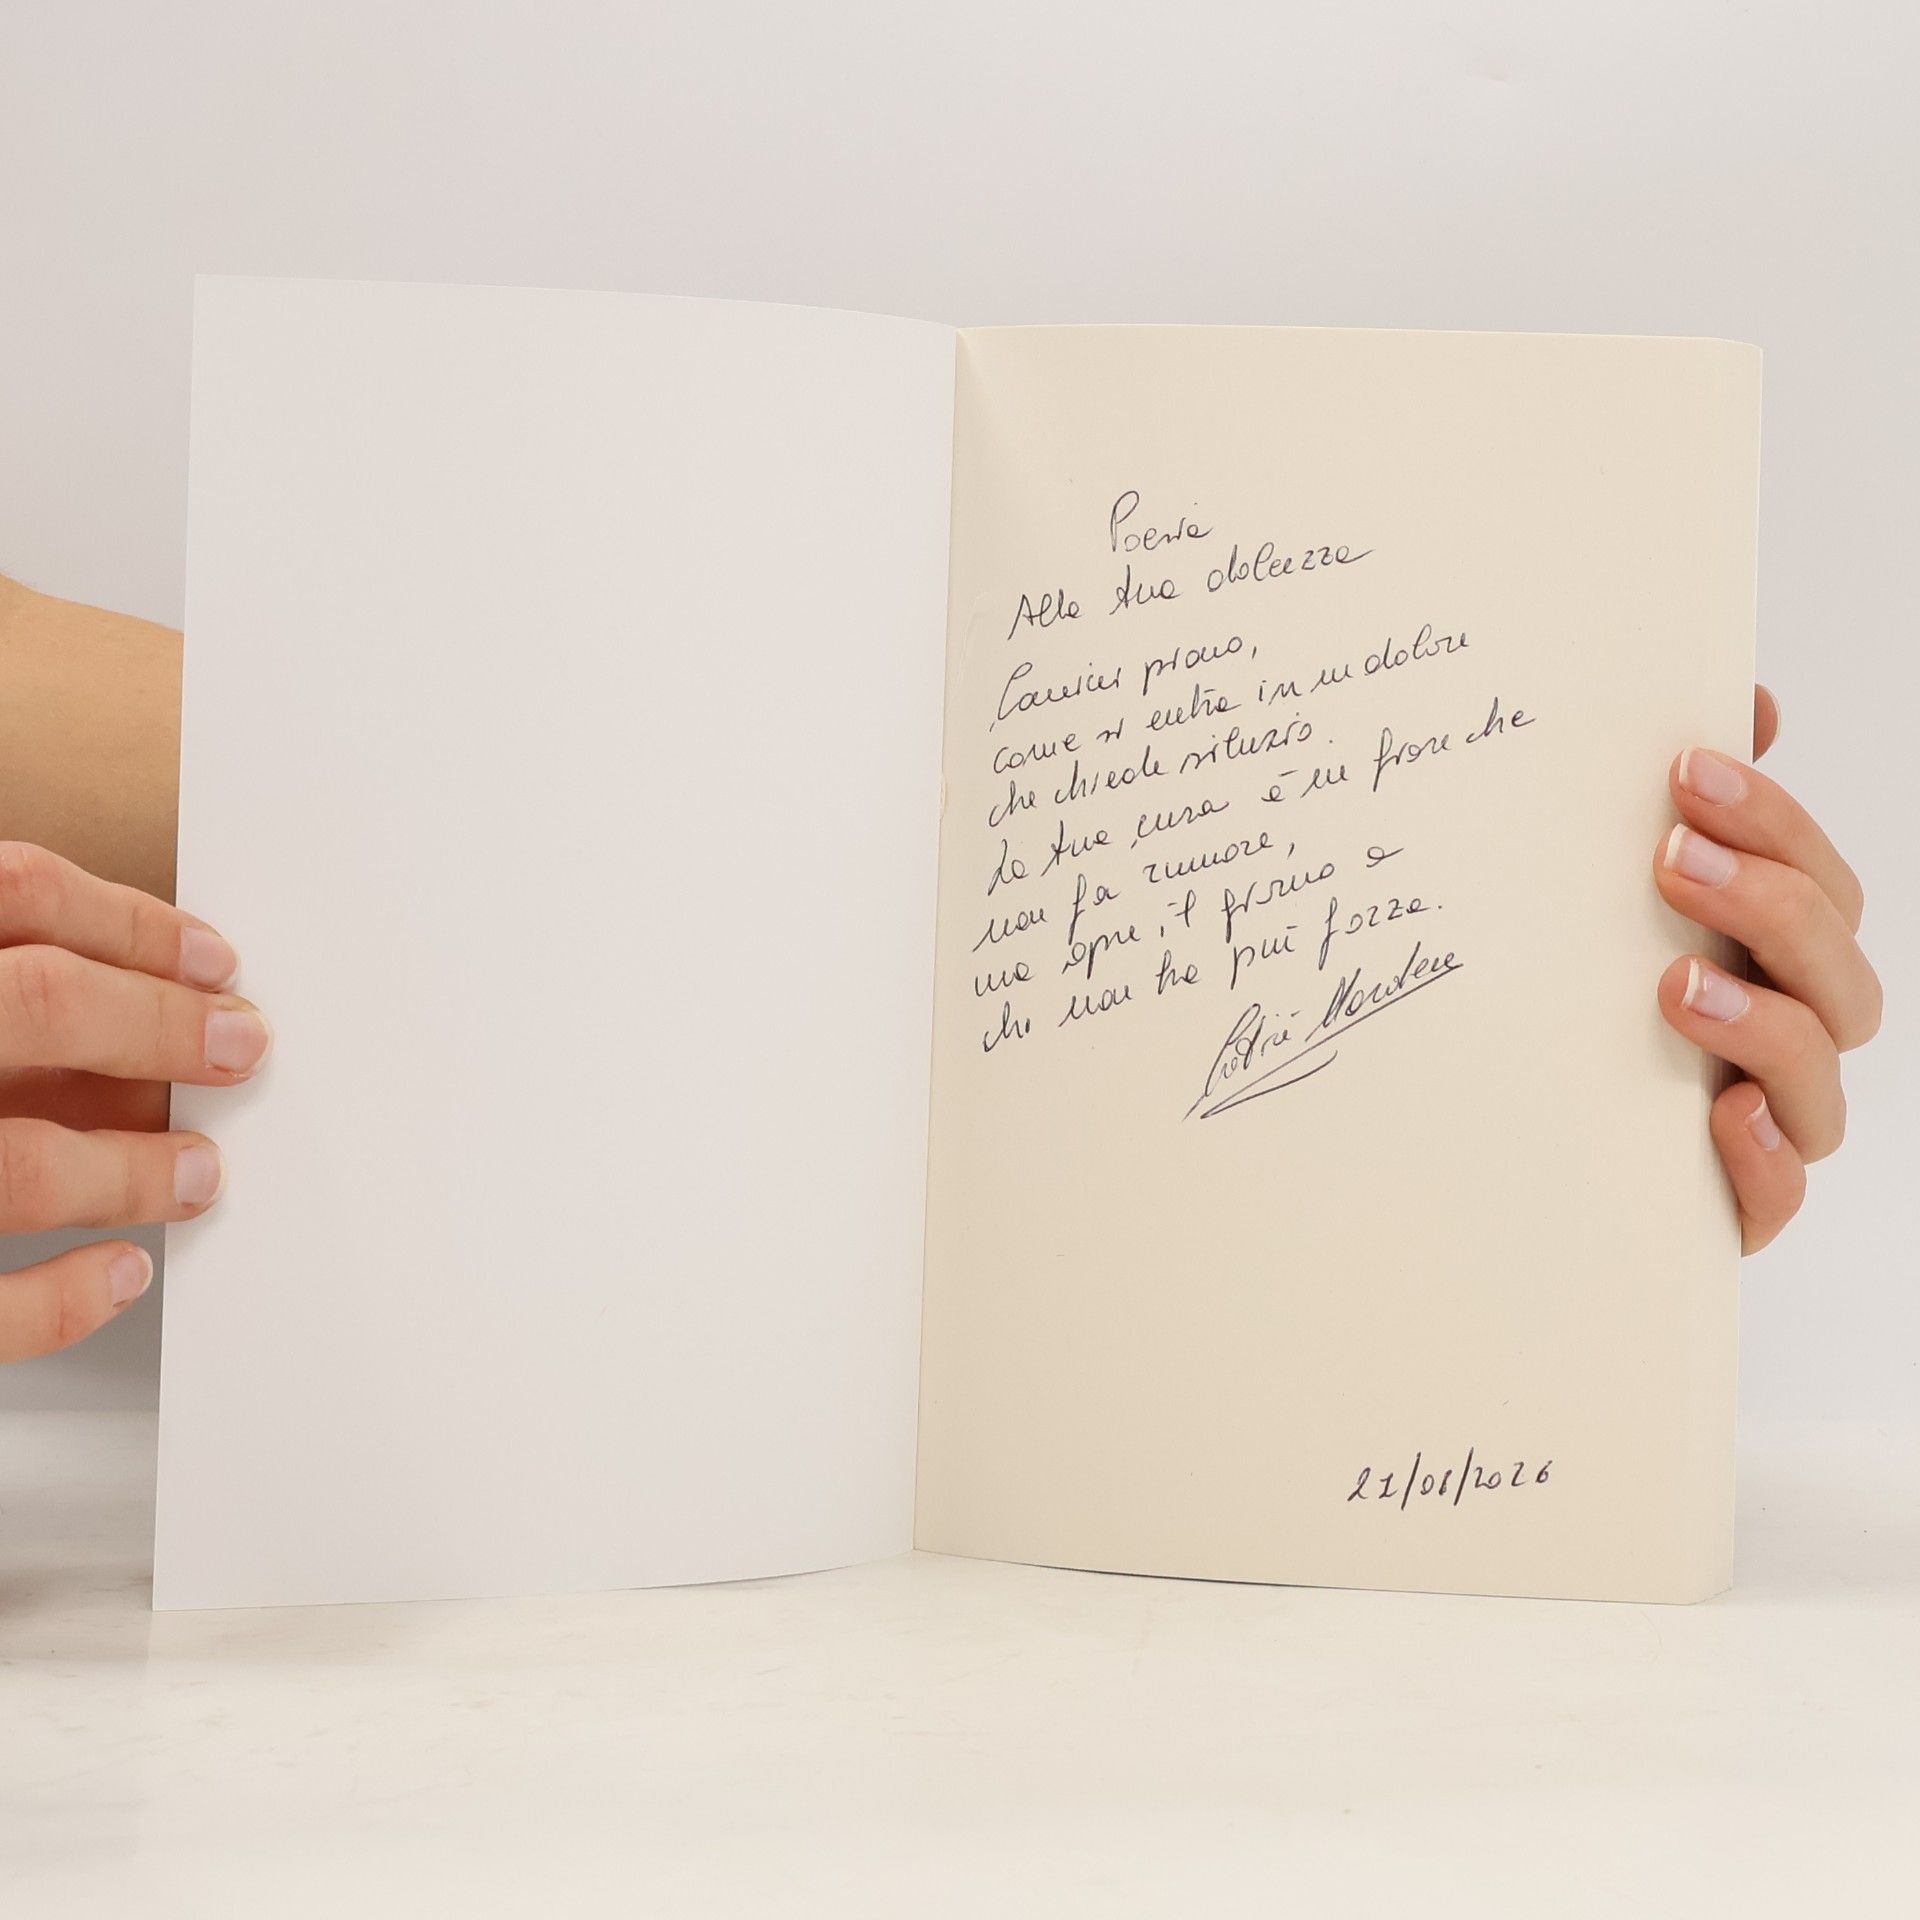 Poesia
Alla tua dolcezza
Cammini piano,
come si entra in un dolore
che chiede silenzio.
La tua cura è un fiore che
non fa rumore,
ma apre il giorno a
chi non ha più forza.
21/01/2026